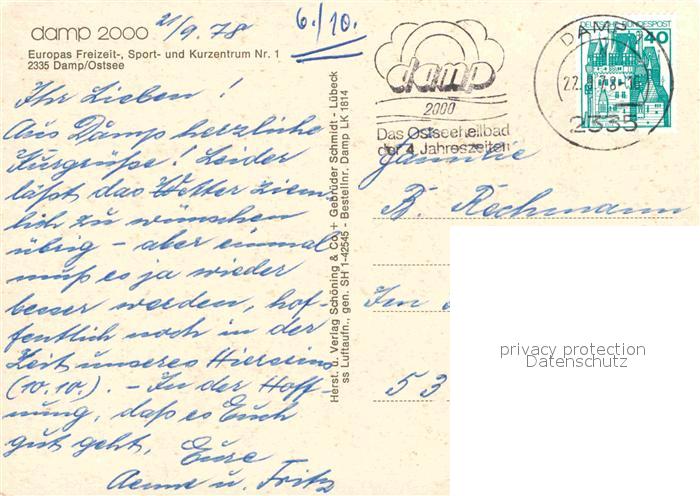 damp 2000
21/9.78
6./10.
Europas Freizeit-, Sport- und Kurzentrum Nr. 1
2335 Damp/Ostsee
Ihr Lieben!
Aus Damp herzliche
Kurgrüße! Leider
läßt das Wetter ziem-
lich zu wünschen
übrig – aber einmal
muß es ja wieder
besser werden, hof-
fentlich noch in der
Zeit unseres Hierseins
(10.10.). – In der Hoff-
nung, daß es Euch
gut geht, Eure
Aenne u. Fritz
Herst. u. Verlag Schöning & Co. + Gebrüder Schmidt - Lübeck
ss Luftaufn., gen. SH 1-42545 - Bestellnr. Damp LK 1814
damp
2000
Das Ostseeheilbad
der 4 Jahreszeiten
DEUTSCHE BUNDESPOST
40
DAMP
2335
Familie
B. Rechmann
Im
53
privacy protection
Datenschutz